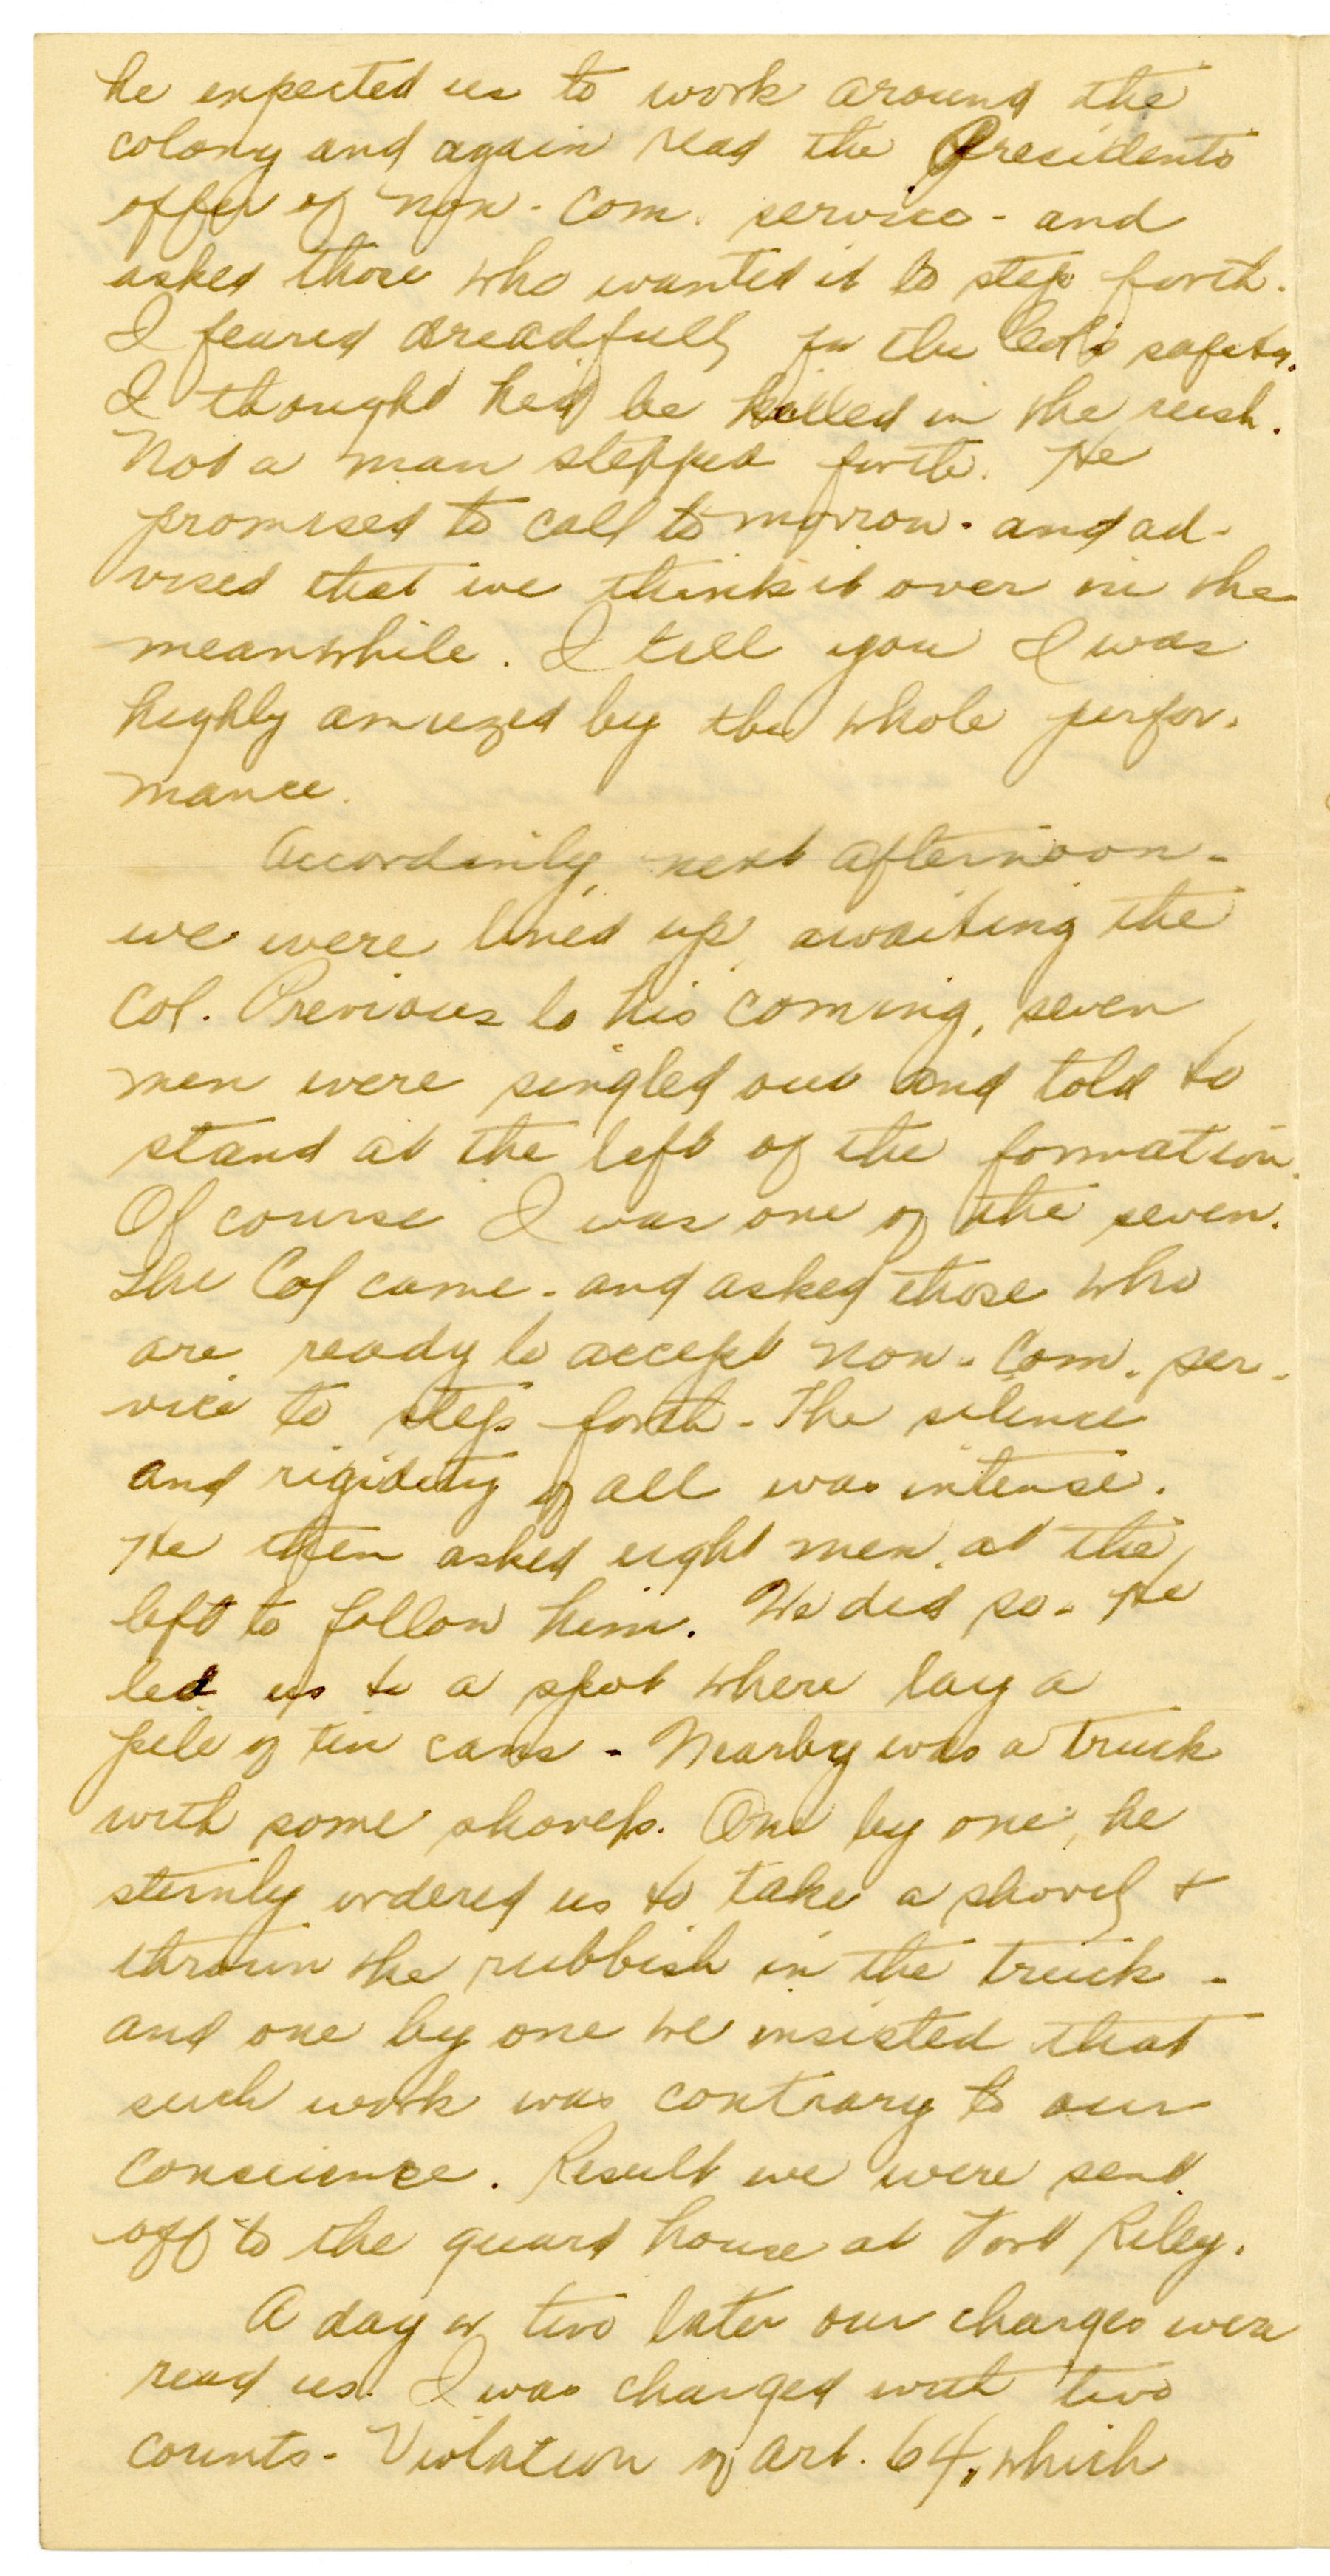 he expected us to work around the
colony and again read the Presidents
offer of non-com. service - and
asked those who wanted it to step forth.
I feared dreadfully for the Col's safety.
I thought he'd be killed in the rush.
Not a man stepped forth. He
promised to call tomorrow - and ad-
vised that we think it over in the
meanwhile. I tell you I was
highly amuzed by the whole perfor-
mance.
Accordinly, next afternoon -
we were lined up, awaiting the
Col. Previous to his coming, seven
men were singled out and told to
stand at the left of the formation.
Of course I was one of the seven.
The Col came - and asked those who
are ready to accept non-com. ser-
vice to step forth - The silence
and rigidity of all was intense.
He then asked eight men at the
left to follow him. We did so - He
led us to a spot where lay a
pile of tin cans - Nearby was a truck
with some shovels. One by one, he
sternly ordered us to take a shovel &
thrown the rubbish in the truck -
and one by one we insisted that
such work was contrary to our
conscience. Result we were sent
off to the guard house at Fort Riley.
A day or two later our charges were
read us. I was charged with two
counts - Violation of Art. 64, which